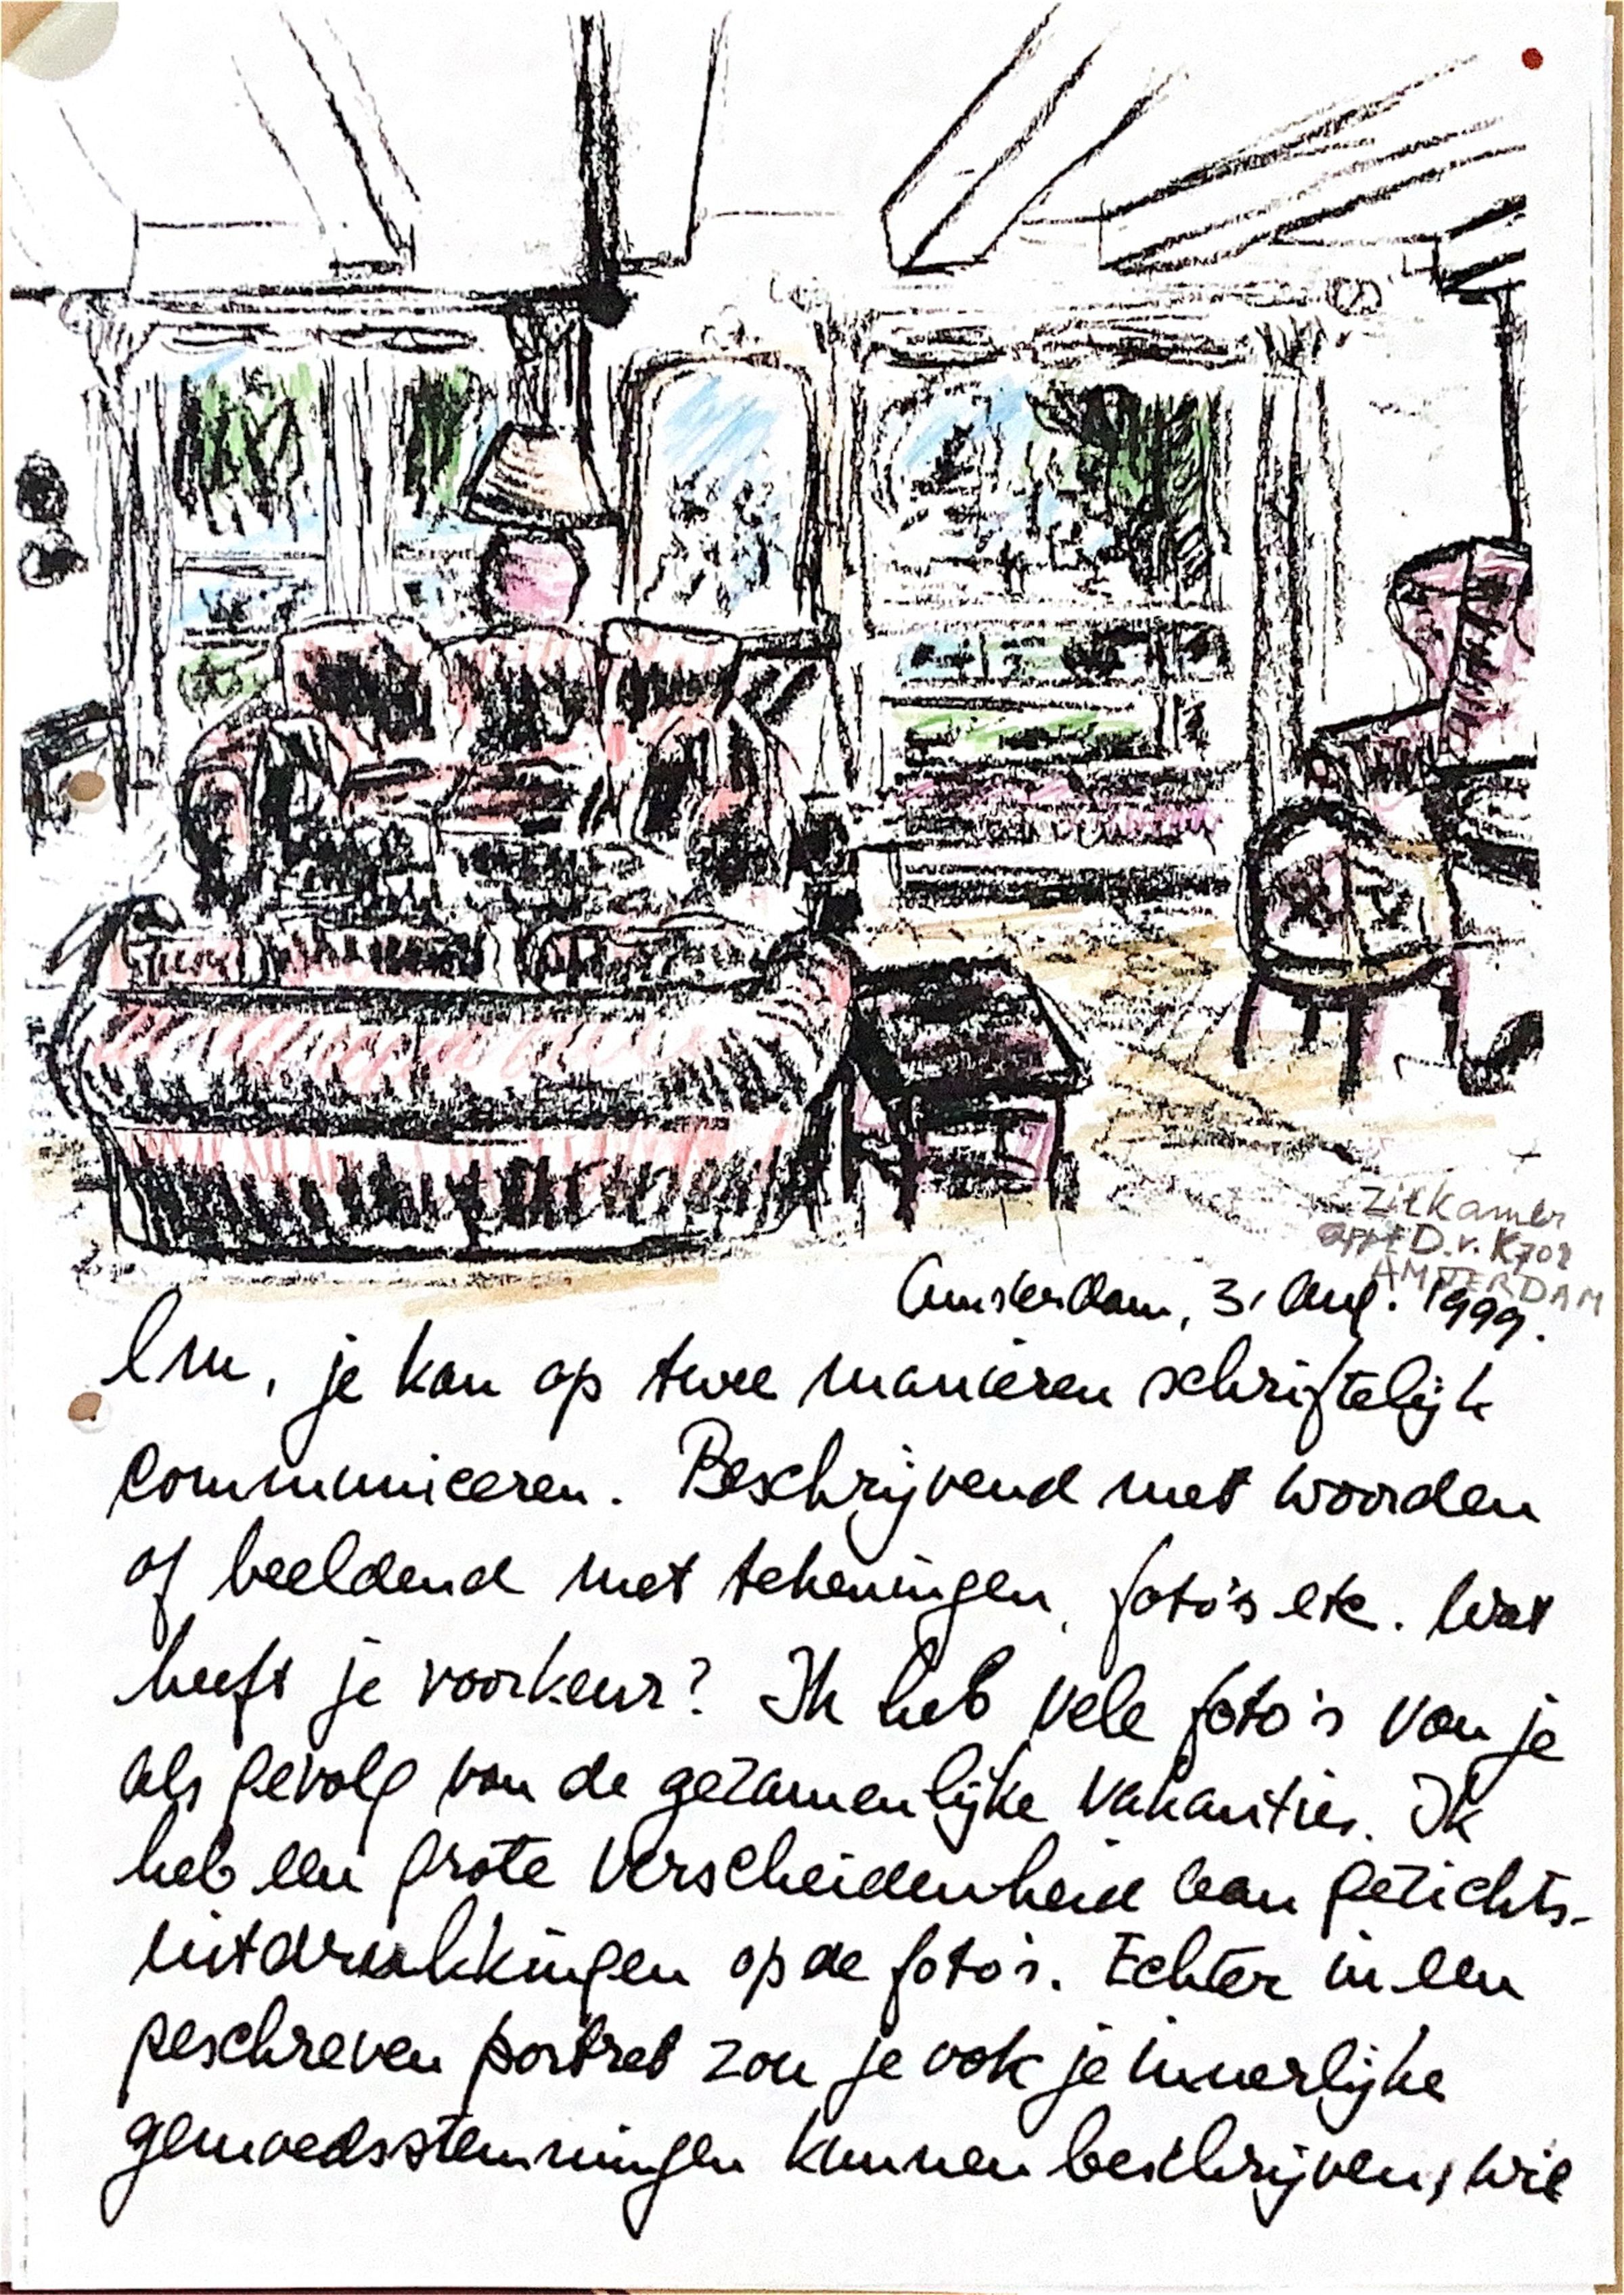 Zitkamer
appt D.v. K701
AMSTERDAM
Amsterdam, 3, Aug. 1999.
Em, je kan op twee manieren schriftelijk
communiceren. Beschrijvend met woorden
of beeldend met tekeningen, foto's etc. Wat
heeft je voorkeur? Ik heb vele foto's van je
als gevolg van de gezamenlijke vakanties. Ik
heb een grote verscheidenheid aan gezichts-
uitdrukkingen op de foto's. Echter in een
geschreven portret zou je ook je innerlijke
gemoedsstemningen kunnen beschrijven, wie